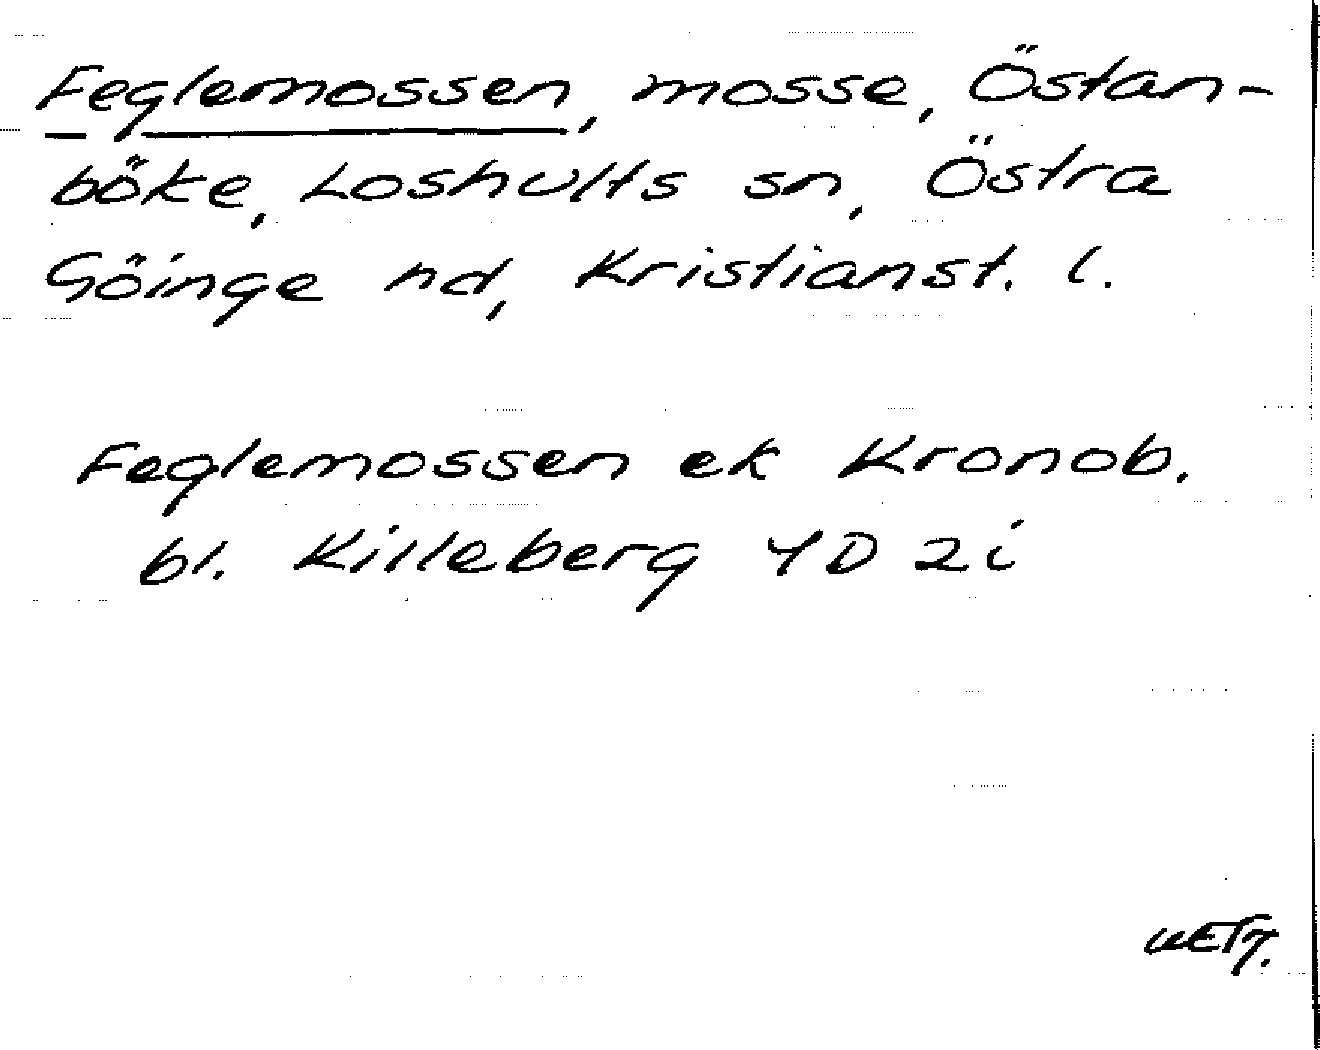 Feglemossen, mosse, Östan-
böke, Loshults sn, Östra
Göinge hd, Kristianst. l.
Feglemossen ek Kronob.
bl. Killeberg 4D 2i